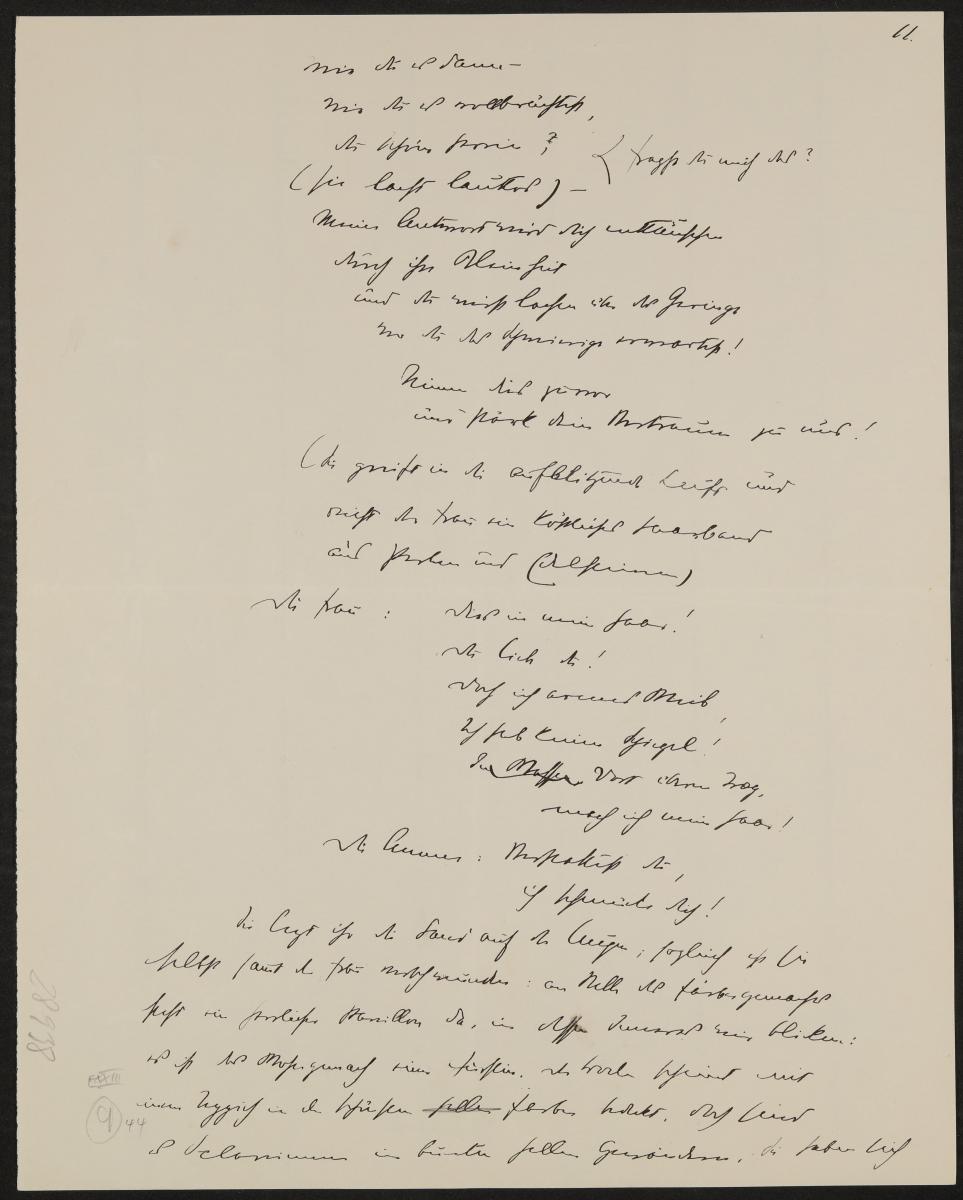 11.
wie du es dann –
wie du es vollbrächtest,
du schöne Herrin?
fragst du mich das?
(sie lacht lautlos) –
Meine Antwort wird dich enttäuschen
durch ihre Kleinheit
und du wirst lachen über das Geringe
wo du das Schwierige erwartest!
Nimm dies zuvor
und stärk dein Vertrauen zu uns!
(Sie greift in die aufblitzende Luft und
reicht der Frau ein köstliches Haarband
aus Perlen und Edelsteinen)
Die Frau: Dies in mein Haar!
Du liebe du!
Doch ich armes Weib,
Ich hab keinen Spiegel!
Im Wasser Dort überm Trog,
mach ich mein Haar!
Die Amme: Verstattest du,
ich schmücke dich!
Sie legt ihr die Hand auf die Augen; sogleich ist sie
selbst samt der Frau verschwunden: an Stelle des Färbergemachs
steht ein herrlicher Pavillon da, in dessen Inneres wir blicken:
es ist das Wohngemach einer Fürstin. Der Boden scheint mit
einem Teppich in den schönsten Farben bedeckt, doch sind
es Sclavinnen in bunten hellen Gewändern. Sie haben sich
9
44